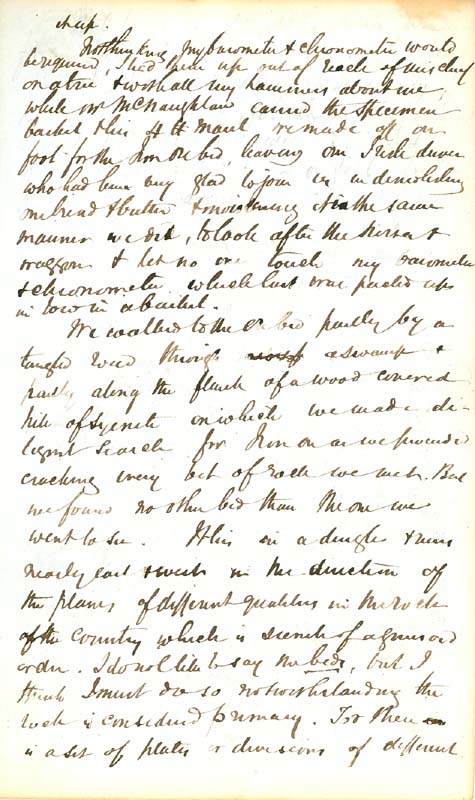 chap.
Not thinking my barometer & chronometer would
be required, I tied them up out of reach of mischief
on a tree & with all my hammers about me,
while Mr McNaughtan carried the specimen
basket & his 4 lb maul we made off on
foot for the Iron ore bed, leaving our Irish driver
who had been very glad to join us in demolishing
our bread & butter & moistening it in the same
manner we did, to look after the horses &
waggon & let no one touch my barometer
& chronometer which last was packed up
in tow in a basket.
We walked to the ore bed partly by a
tangled road through a swamp &
partly along the flank of a wood covered
hill of syenite on which we made di-
ligent search for Iron ore as we proceeded
cracking every bit of rock we met. But
we found no other bed than the one we
went to see. It is in a dingle & runs
nearly east & west in the direction of
the planes of different qualities in the rock
of the country which is syenite of a gneissoid
order. I do not like to say the beds, but I
think I must do so notwithstanding the
rock is considered primary. For there
is a set of plates or divisions of different